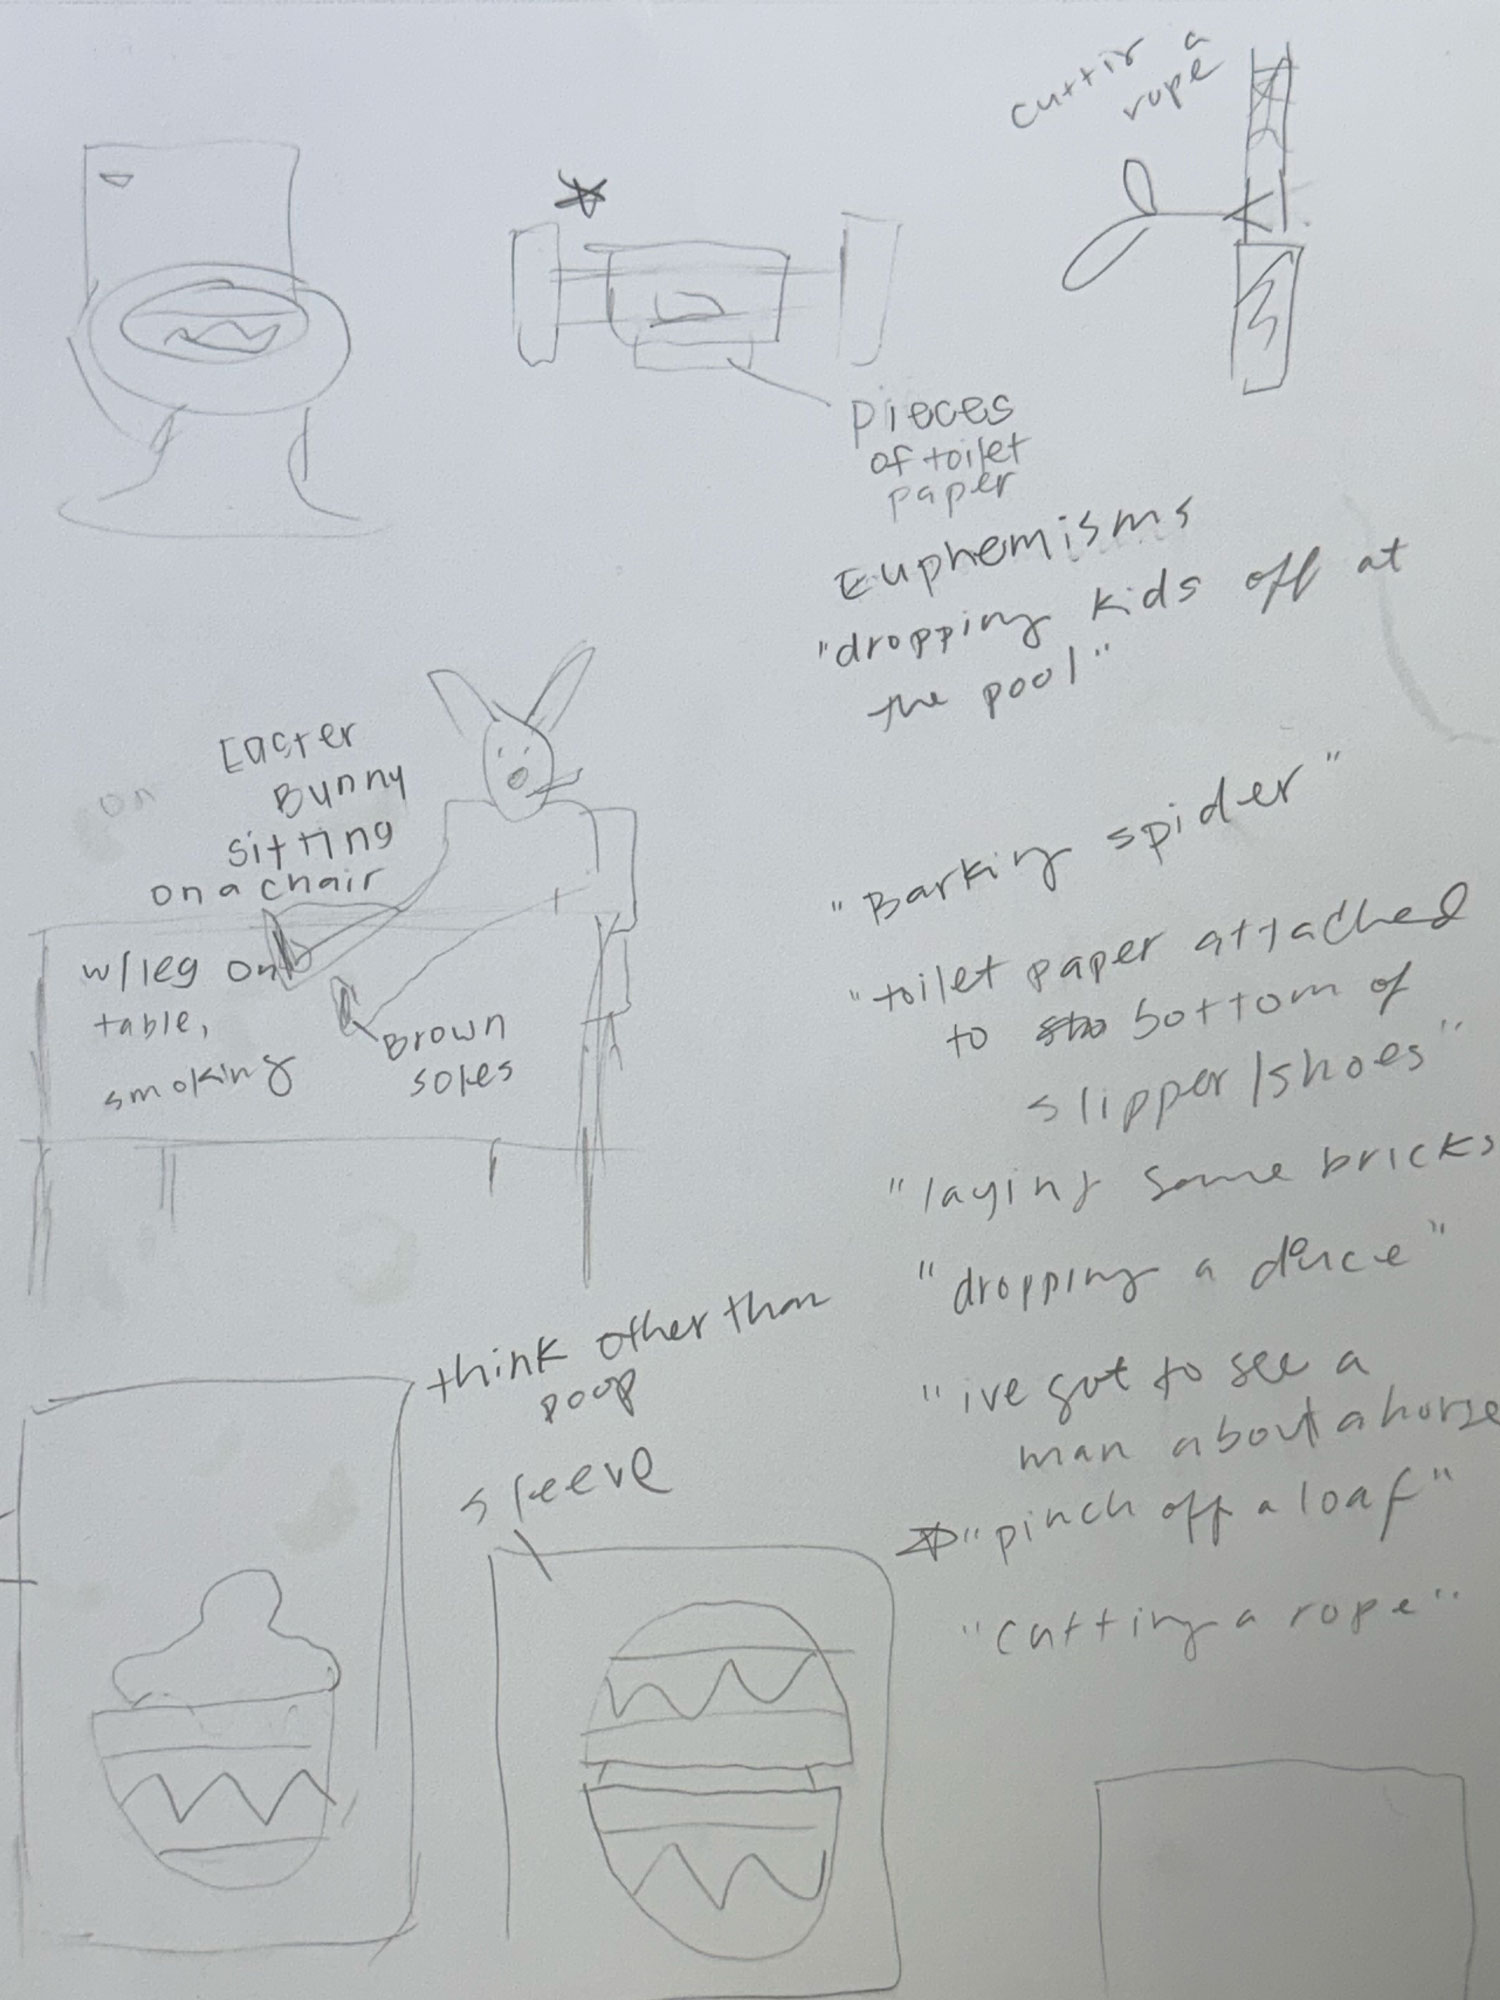 cuttin a
rope
pieces
of toilet
paper
Euphemisms
"dropping kids off at
the pool"
Easter
Bunny
sitting
on a chair
on
w/leg on
table,
smoking
Brown
soles
"Barking spider"
"toilet paper attached
to sho bottom of
slipper/shoes"
"laying some bricks
"dropping a duce"
"ive got to see a
man about a horse
"pinch off a loaf"
"cutting a rope"
think other than
poop
sleeve